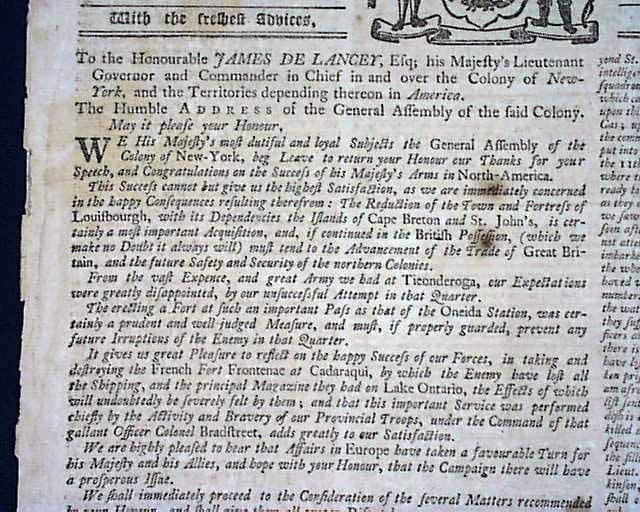 With the freshest Advices,
To the Honourable JAMES DE LANCEY, Esq; his Majesty's Lieutenant
Governor and Commander in Chief in and over the Colony of New-
York, and the Territories depending thereon in America.
The Humble ADDRESS of the General Assembly of the said Colony.
May it please your Honour,
WE His Majesty's most dutiful and loyal Subjects the General Assembly of the
Colony of New-York, beg Leave to return your Honour our Thanks for your
Speech, and Congratulations on the Success of his Majesty's Arms in North-America.
This Success cannot but give us the highest Satisfaction, as we are immediately concerned
in the happy Consequences resulting therefrom: The Reduction of the Town and Fortress of
Louisbourgh, with its Dependencies the Islands of Cape Breton and St. John's, is cer-
tainly a most important Acquisition, and, if continued in the British Possession, (which we
make no Doubt it always will) must tend to the Advancement of the Trade of Great Bri-
tain, and the future Safety and Security of the northern Colonies.
From the vast Expence, and great Army we had at Ticonderoga, our Expectations
were greatly disappointed, by our unsuccessful Attempt in that Quarter.
The erecting a Fort at such an important Pass as that of the Oneida Station, was cer-
tainly a prudent and well-judged Measure, and must, if properly guarded, prevent any
future Irruptions of the Enemy in that Quarter.
It gives us great Pleasure to reflect on the happy Success of our Forces, in taking and
destroying the French Fort Frontenac at Cadaraqui, by which the Enemy have lost all
the Shipping, and the principal Magazine they had on Lake Ontario, the Effects of which
will undoubtedly be severely felt by them; and that this important Service was performed
chiefly by the Activity and Bravery of our Provincial Troops, under the Command of that
gallant Officer Colonel Bradstreet, adds greatly to our Satisfaction.
We are highly pleased to hear that Affairs in Europe have taken a favourable Turn for
his Majesty and his Allies, and hope with your Honour, that the Campaign there will have
a prosperous Issue.
We shall immediately proceed to the Consideration of the several Matters recommended